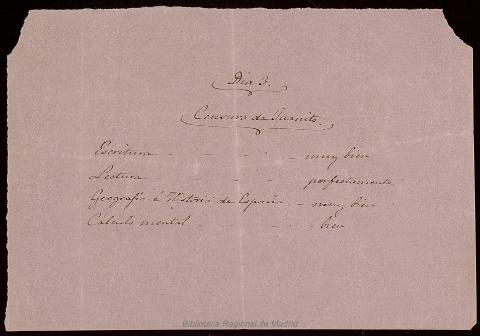 Día 3.
Censura de Juanito.
Escritura - - - - - muy bien
Lectura - - - - perfectamente
Geografía é Historia de España - muy bien
Cálculo mental - - - - bien
Biblioteca Regional de Madrid